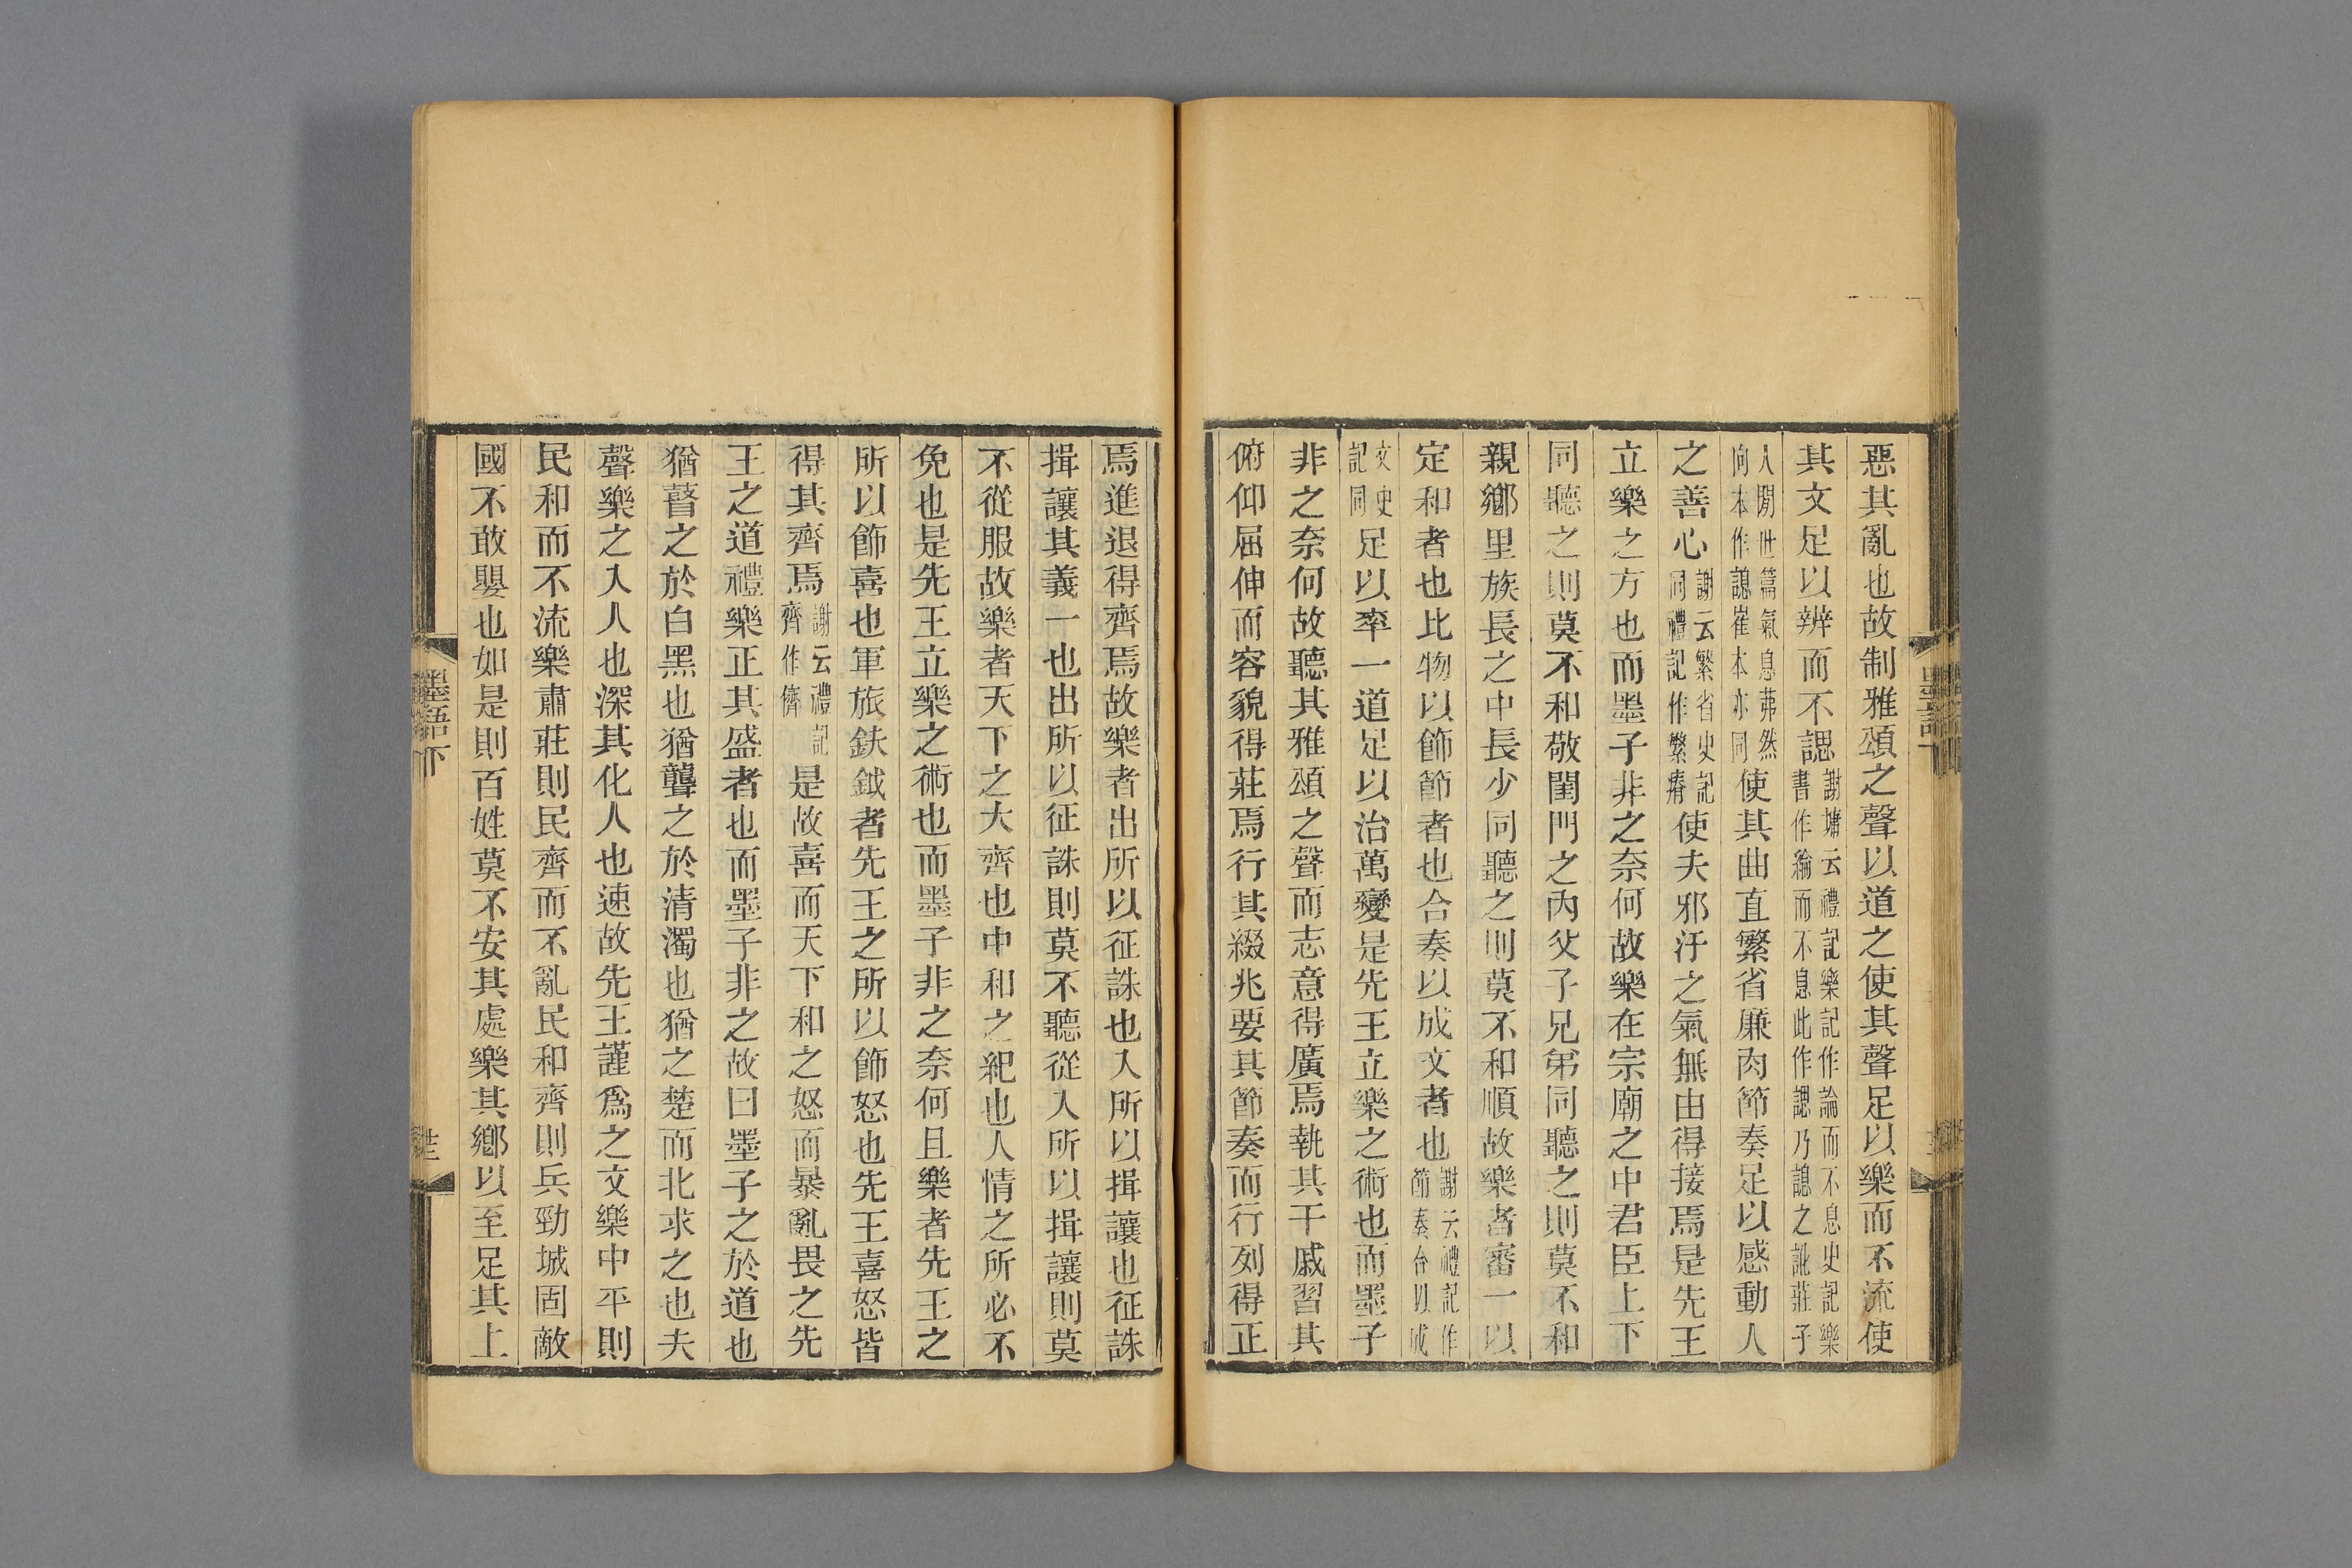 惡其亂也故制雅頌之聲以道之使其聲足以樂而不流使
其文足以辨而不諰謝墉云禮記樂記作論而不息史記樂書作綸而不息此作諰乃諰之訛莊子
人閒世篇氣息茀然向本作諰崔本亦同使其曲直繁省廉肉節奏足以感動人
之善心謝云繁省史記同禮記作繁瘠使夫邪汙之氣無由得接焉是先王
立樂之方也而墨子非之奈何故樂在宗廟之中君臣上下
同聽之則莫不和敬閨門之內父子兄弟同聽之則莫不和
親鄉里族長之中長少同聽之則莫不和順故樂者審一以
定和者也比物以飾節者也合奏以成文者也謝云禮記作節奏合以成
文史記同足以率一道足以治萬變是先王立樂之術也而墨子
非之奈何故聽其雅頌之聲而志意得廣焉執其干戚習其
俯仰屈伸而容貌得莊焉行其綴兆要其節奏而行列得正
焉進退得齊焉故樂者出所以征誅也入所以揖讓也征誅
揖讓其義一也出所以征誅則莫不聽從入所以揖讓則莫
不從服故樂者天下之大齊也中和之紀也人情之所必不
免也是先王立樂之術也而墨子非之奈何且樂者先王之
所以飾喜也軍旅鈇鉞者先王之所以飾怒也先王喜怒皆
得其齊焉謝云禮記齊作儕是故喜而天下和之怒而暴亂畏之先
王之道禮樂正其盛者也而墨子非之故曰墨子之於道也
猶瞽之於白黑也猶聾之於清濁也猶之楚而北求之也夫
聲樂之入人也深其化人也速故先王謹爲之文樂中平則
民和而不流樂肅莊則民齊而不亂民和齊則兵勁城固敵
國不敢嬰也如是則百姓莫不安其處樂其鄉以至足其上
墨語下